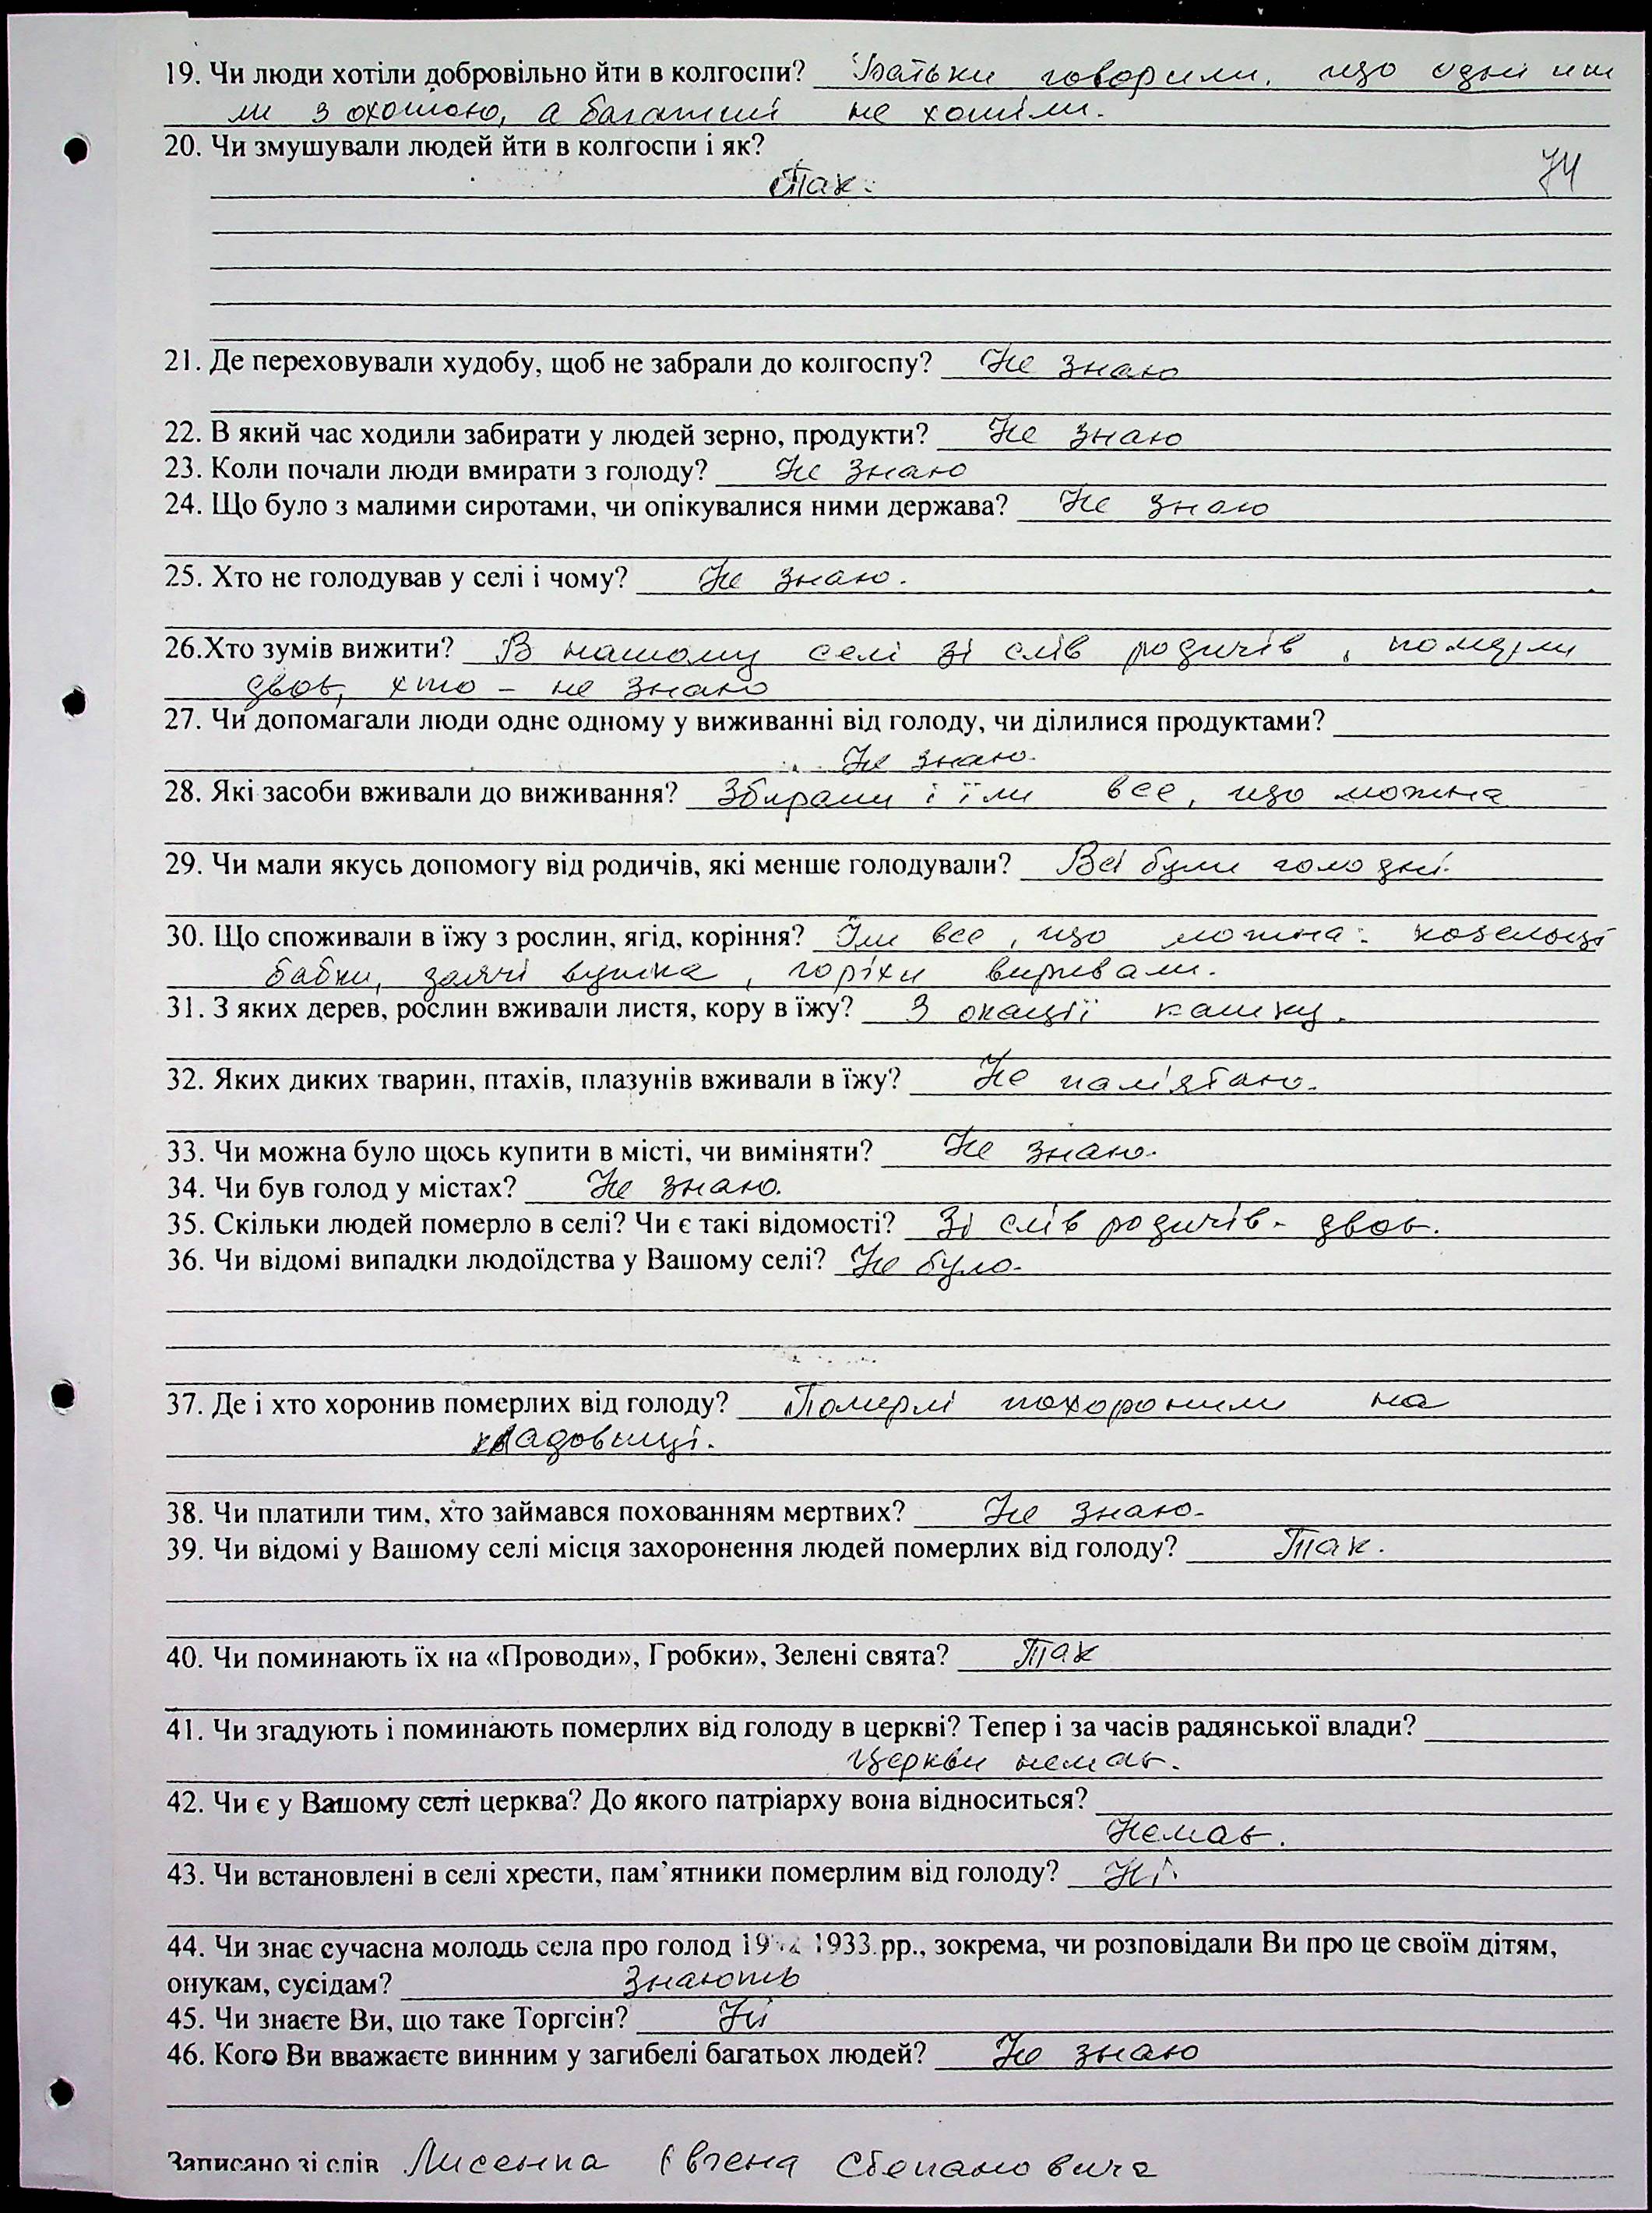 19. Чи люди хотіли добровільно йти в колгоспи? Батьки говорили, що одні йш
ли з охотою, а багатші не хотіли.
20. Чи змушували людей йти в колгоспи і як?
Так.
74
21. Де переховували худобу, щоб не забрали до колгоспу? Не знаю
22. В який час ходили забирати у людей зерно, продукти? Не знаю
23. Коли почали люди вмирати з голоду? Не знаю
24. Що було з малими сиротами, чи опікувалися ними держава? Не знаю
25. Хто не голодував у селі і чому? Не знаю.
26.Хто зумів вижити? В нашому селі зі слів родичів, померли
двоє, хто - не знаю
27. Чи допомагали люди одне одному у виживанні від голоду, чи ділилися продуктами?
Не знаю.
28. Які засоби вживали до виживання? Збирали і їли все, що можна
29. Чи мали якусь допомогу від родичів, які менше голодували? Всі були голодні.
30. Що споживали в їжу з рослин, ягід, коріння? Їли все, що можна: козельці
бабки, заячі вушка, горіхи виривали.
31. З яких дерев, рослин вживали листя, кору в їжу? З акації кашку.
32. Яких диких тварин, птахів, плазунів вживали в їжу? Не пам'ятаю.
33. Чи можна було щось купити в місті, чи виміняти? Не знаю.
34. Чи був голод у містах? Не знаю.
35. Скільки людей померло в селі? Чи є такі відомості? Зі слів родичів - двоє.
36. Чи відомі випадки людоїдства у Вашому селі? Не було.
37. Де і хто хоронив померлих від голоду? Померлі похоронили на
кладовищі.
38. Чи платили тим, хто займався похованням мертвих? Не знаю.
39. Чи відомі у Вашому селі місця захоронення людей померлих від голоду? Так.
40. Чи поминають їх на «Проводи», Гробки», Зелені свята? Так
41. Чи згадують і поминають померлих від голоду в церкві? Тепер і за часів радянської влади?
Церкви немає.
42. Чи є у Вашому селі церква? До якого патріарху вона відноситься?
Немає.
43. Чи встановлені в селі хрести, пам’ятники померлим від голоду? Ні.
44. Чи знає сучасна молодь села про голод 1932 1933.рр., зокрема, чи розповідали Ви про це своїм дітям,
онукам, сусідам? Знають
45. Чи знаєте Ви, що таке Торгсін? Ні
46. Кого Ви вважаєте винним у загибелі багатьох людей? Не знаю
Записано зі слів Лисенка Євгена Степановича